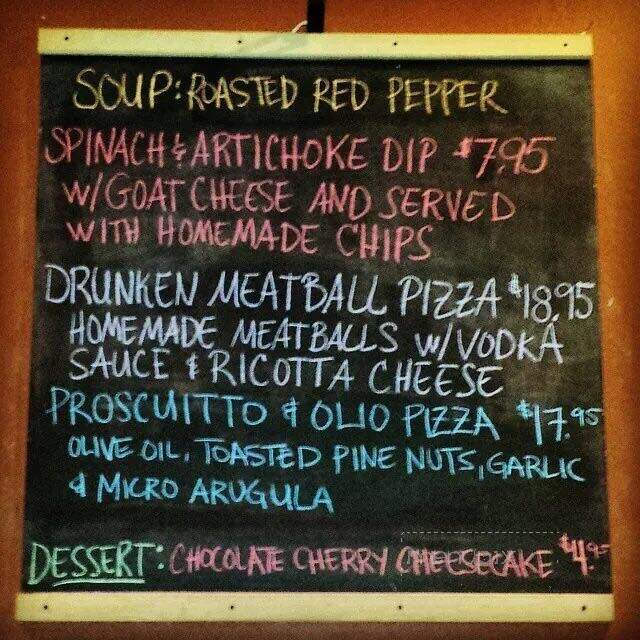 SOUP: ROASTED RED PEPPER
SPINACH & ARTICHOKE DIP $7.95
W/GOAT CHEESE AND SERVED
WITH HOMEMADE CHIPS
DRUNKEN MEATBALL PIZZA $18.95
HOMEMADE MEATBALLS W/VODKA
SAUCE & RICOTTA CHEESE
PROSCUITTO & OLIO PIZZA $17.95
OLIVE OIL, TOASTED PINE NUTS, GARLIC
& MICRO ARUGULA
DESSERT: CHOCOLATE CHERRY CHEESECAKE $4.95